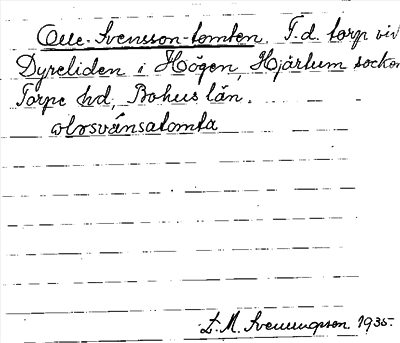 Olle-Svensson-tomten. F.d. torp vid
Dyreliden i Högen, Hjärtum socken
Torpe hd, Bohus län.
olǝsvánsatomta
L.M. Svenungsson 1935.